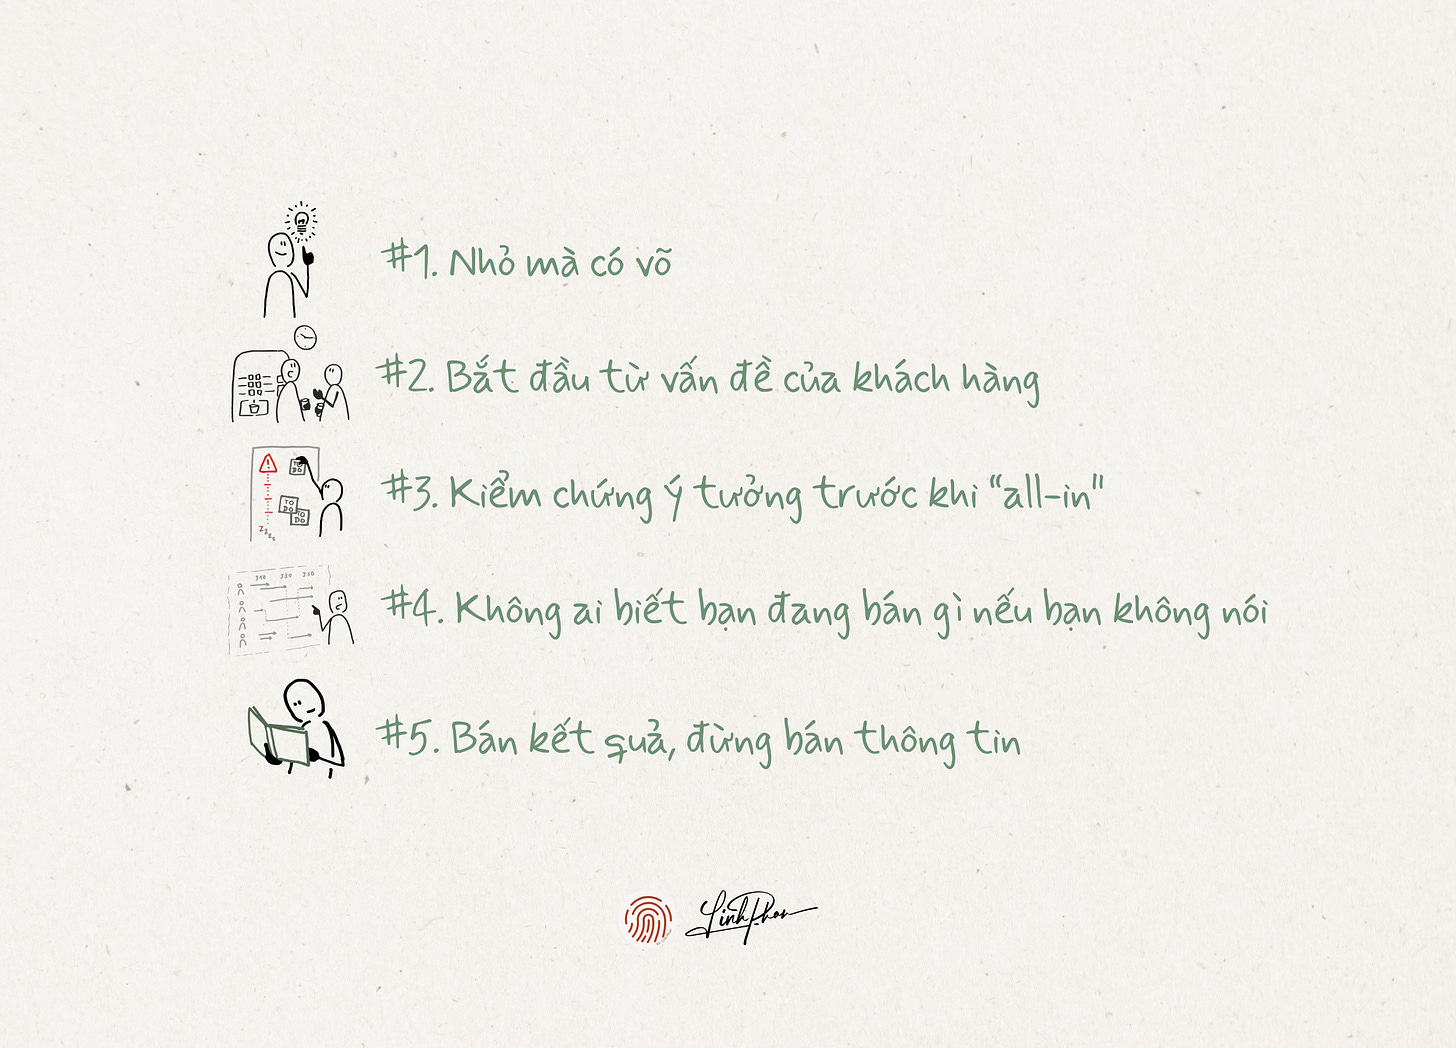 #1. Nhỏ mà có võ
#2. Bắt đầu từ vấn đề của khách hàng
TO DO
TO DO
TO DO
zzzz
#3. Kiểm chứng ý tưởng trước khi “all-in”
#4. Không ai biết bạn đang bán gì nếu bạn không nói
#5. Bán kết quả, đừng bán thông tin
Linh Phan